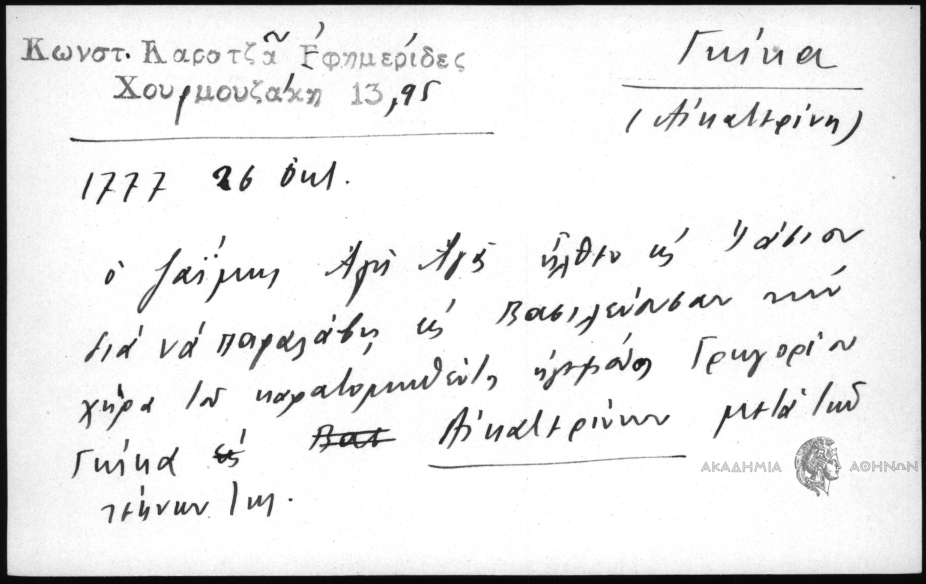 Κωνστ. Καρατζᾶ Ἐφημερίδες
Χουρμουζάκη 13,95
Γκίκα
(Αἰκατερίνη)
1777 26 Ὀκτ.
ὁ Ἀλῆ Ἀγᾶς ἦλθεν εἰς Ἰάσιον
διά νά παραλάβῃ εἰς Βασιλεύουσαν τήν
χήρα τοῦ καρατομηθέντος ἡγεμόνος Γρηγορίου
Γκίκα εἰς Βασ Αἰκατερίνην μετά τῶν
τέκνων της.
ΑΚΑΔΗΜΙΑ ΑΘΗΝΩΝ